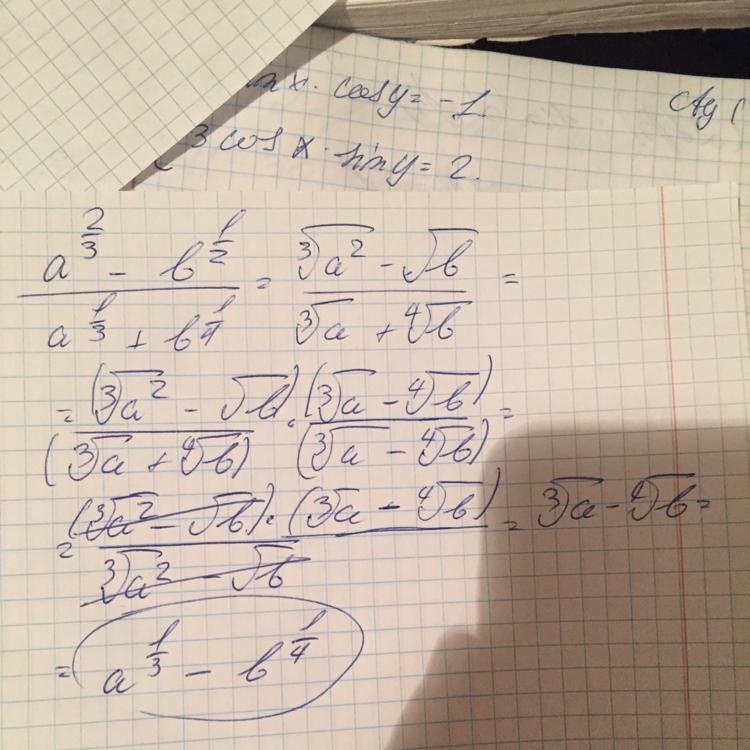 x · cos y = -1 ctg (
3 cos x · sin y = 2.
\frac{a^{\frac{2}{3}} - b^{\frac{1}{2}}}{a^{\frac{1}{3}} + b^{\frac{1}{4}}} = \frac{\sqrt[3]{a^2} - \sqrt{b}}{\sqrt[3]{a} + \sqrt[4]{b}} =
= \frac{(\sqrt[3]{a^2} - \sqrt{b}) · (\sqrt[3]{a} - \sqrt[4]{b})}{(\sqrt[3]{a} + \sqrt[4]{b}) (\sqrt[3]{a} - \sqrt[4]{b})} =
= \frac{(\sqrt[3]{a^2} - \sqrt{b}) · (\sqrt[3]{a} - \sqrt[4]{b})}{\sqrt[3]{a^2} - \sqrt{b}} = \sqrt[3]{a} - \sqrt[4]{b} =
= a^{\frac{1}{3}} - b^{\frac{1}{4}}